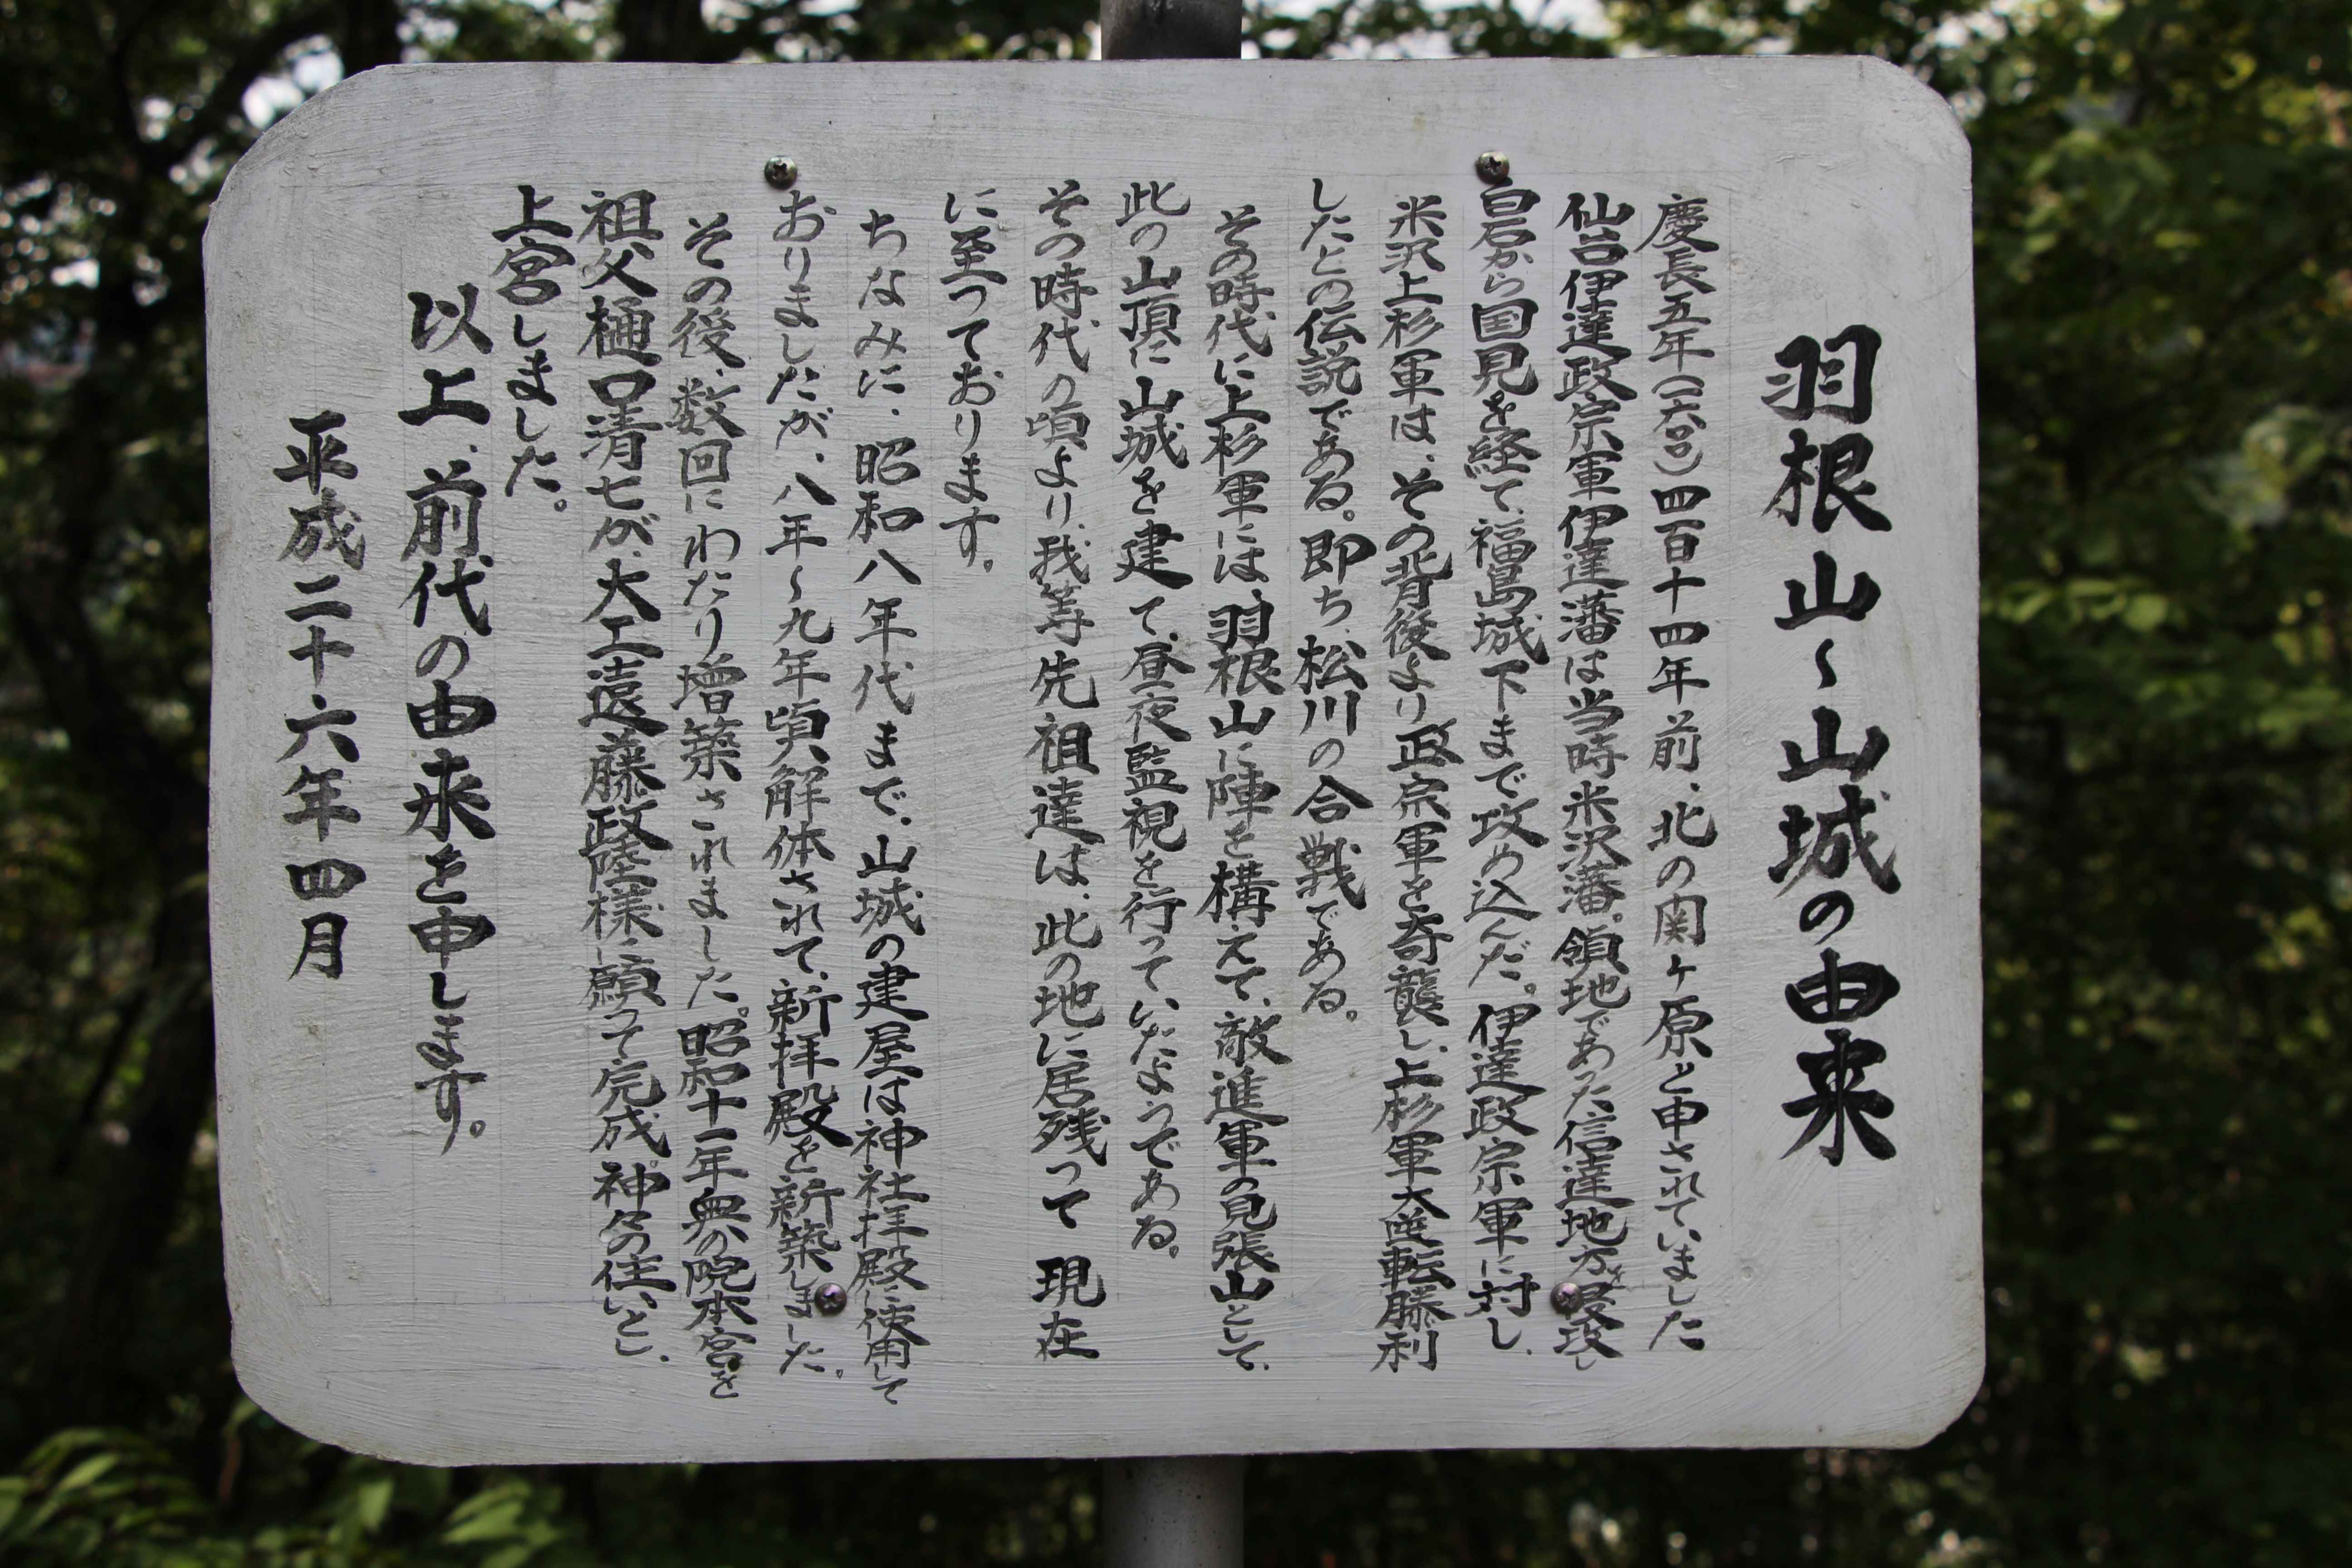 羽根山～山城の由来
慶長五年(一六〇〇)四百十四年前、北の関ヶ原と申されていました
仙台伊達政宗軍伊達藩は当時米沢藩、領地であった信達地方侵攻し
白石から国見を経て、福島城下まで攻め込んだ。伊達政宗軍に対し、
米沢上杉軍は、その背後より政宗軍を奇襲し、上杉軍大逆転勝利
したとの伝説である。即ち、松川の合戦である。
その時代に上杉軍には、羽根山に陣を構えて、敵進軍の見張山として、
此の山頂に山城を建て、昼夜監視を行っていたようである。
その時代の頃より、我等先祖達は、此の地に居残って現在
に至っております。
ちなみに、昭和八年代まで、山城の建屋は神社拝殿に使用して
おりましたが、八年～九年頃解体されて、新拝殿を新築しました。
その後、数回にわたり増築されました。昭和十一年奥の院本宮を
祖父樋口清七が、大工遠藤政陸様に願って完成神々の住いとし、
上宮しました。
以上、前代の由来を申します。
平成二十六年四月